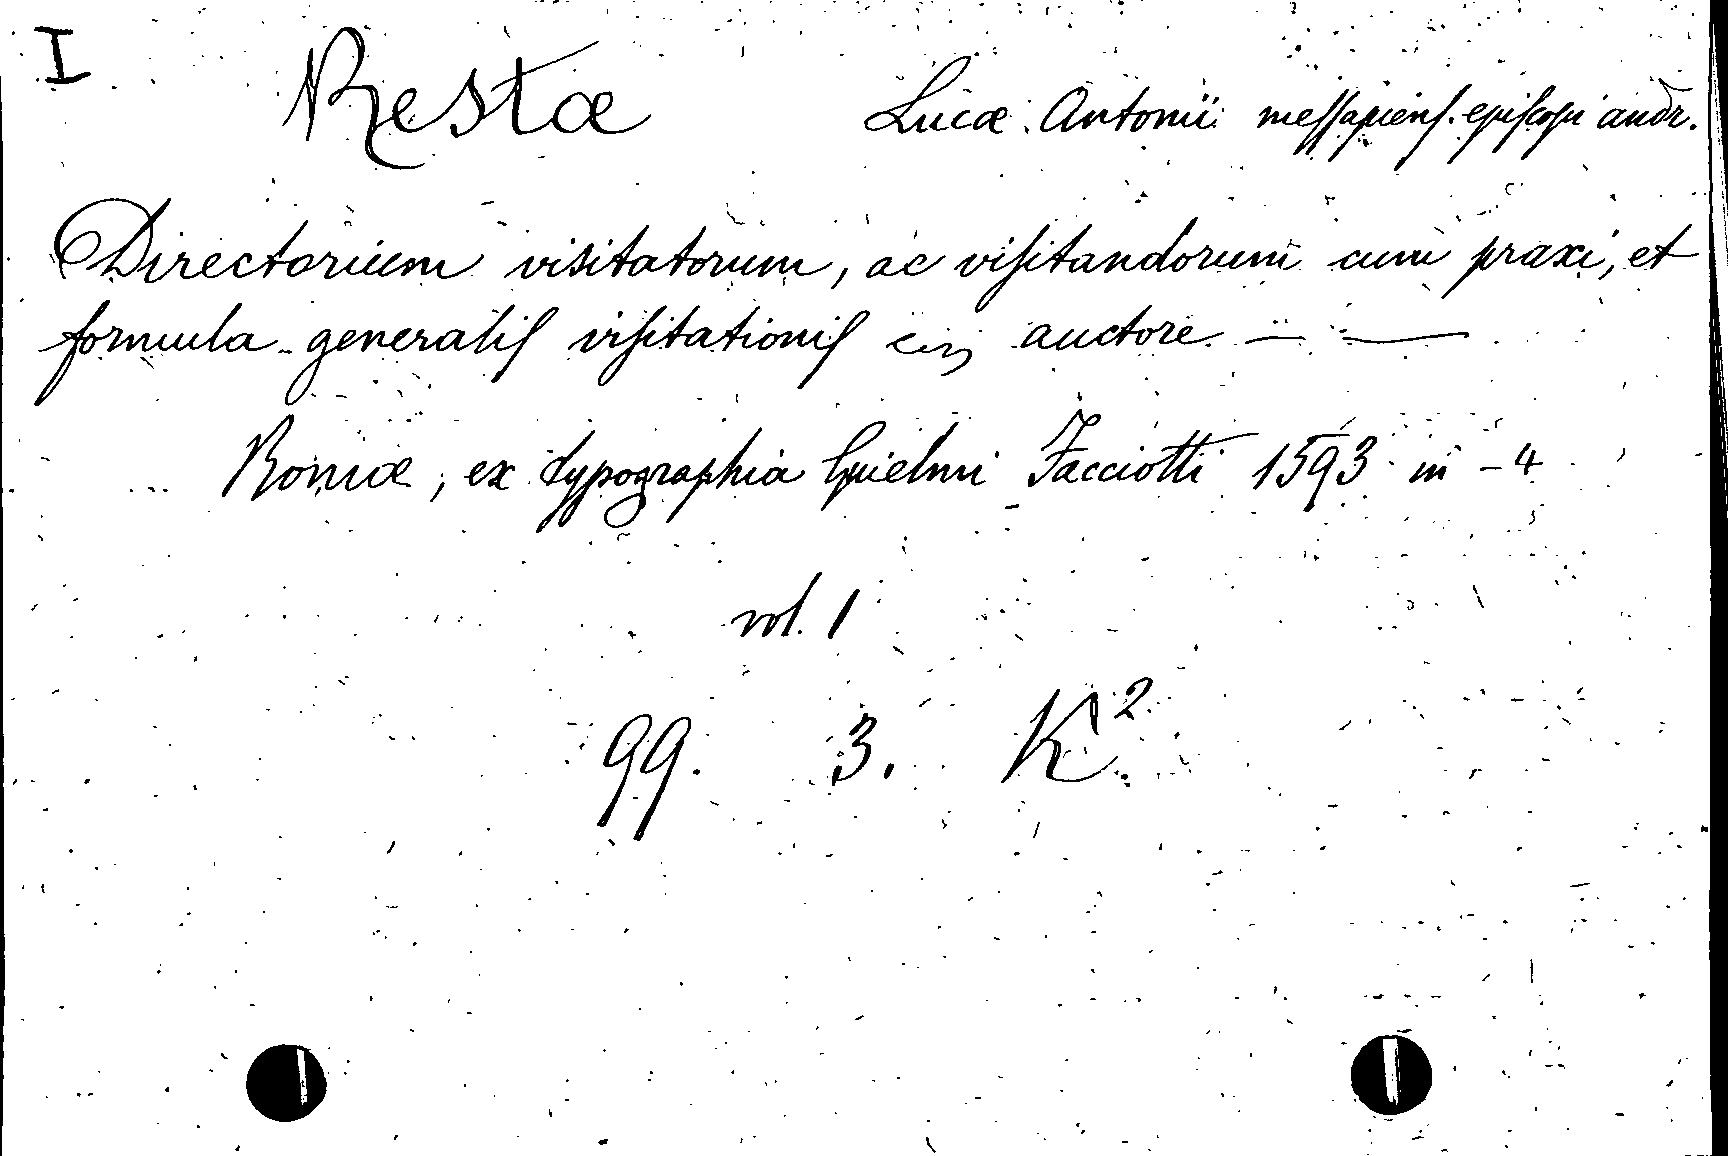 I
Restæ Lucæ Antonii meſſapienſ. epiſcopi andr.
Directorium visitatorum, ac viſitandorum cum praxi, et
formula generaliſ viſitationiſ auctore — —
Romæ, ex typographia Guielmi Facciotti 1593 in - 4
vol. 1
99. 3. K².